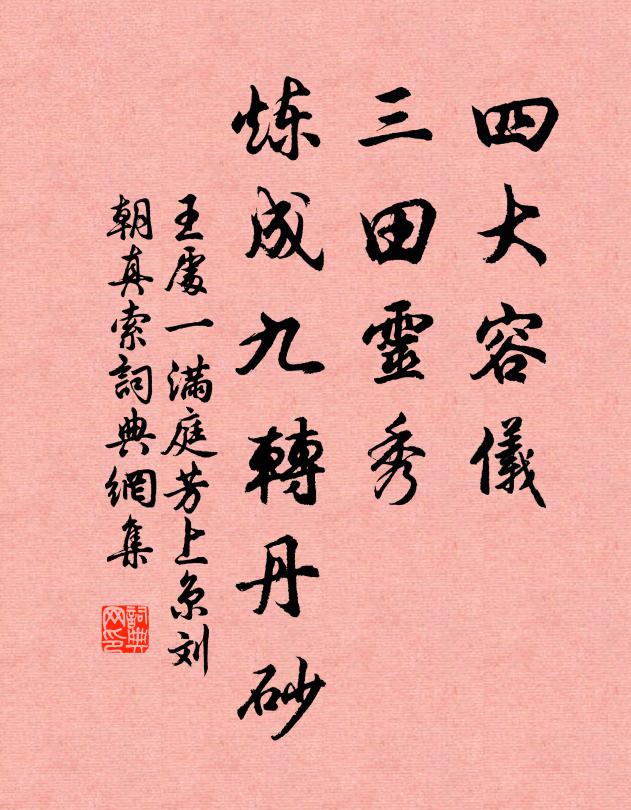 四大容儀
三田靈秀
炼成九轉丹砂
王處一满庭芳上京刘
朝真索詞典網集
詞典网印